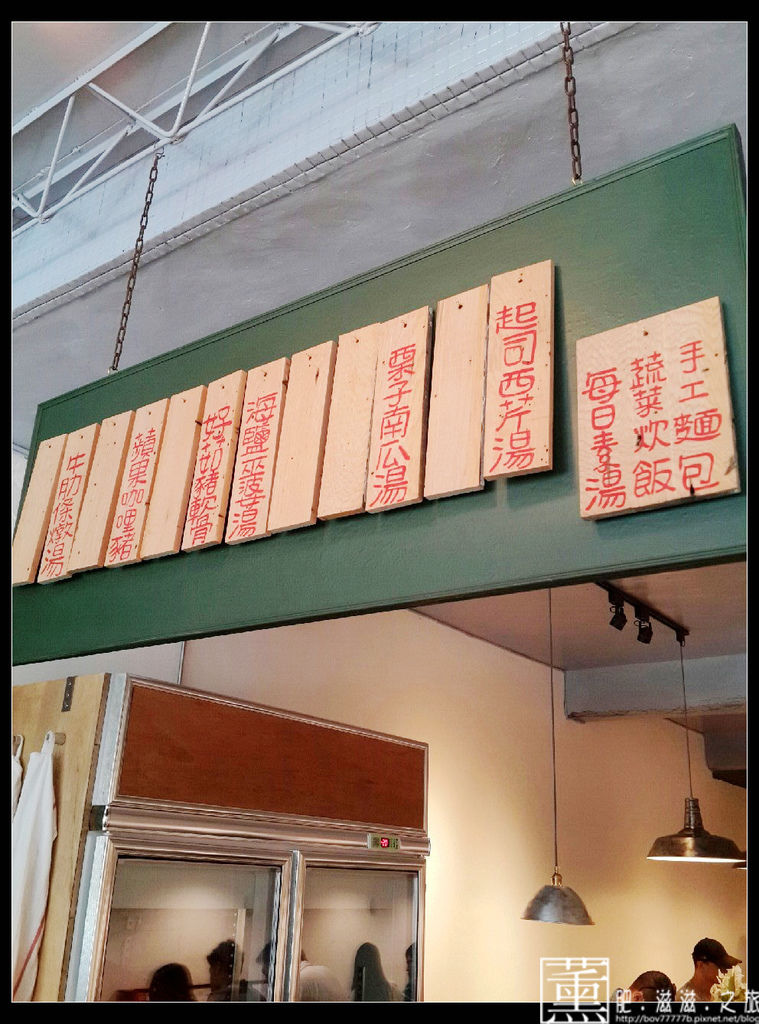 手工麵包
蔬菜炊飯
每日素湯
起司西芹湯
栗子南瓜湯
海鹽菠菜湯
好菇豬軟骨
蘋果咖哩豬
牛肋條燉湯
薰
肥.滋滋.之旅
http://bov77777b.pixnet.net/blog